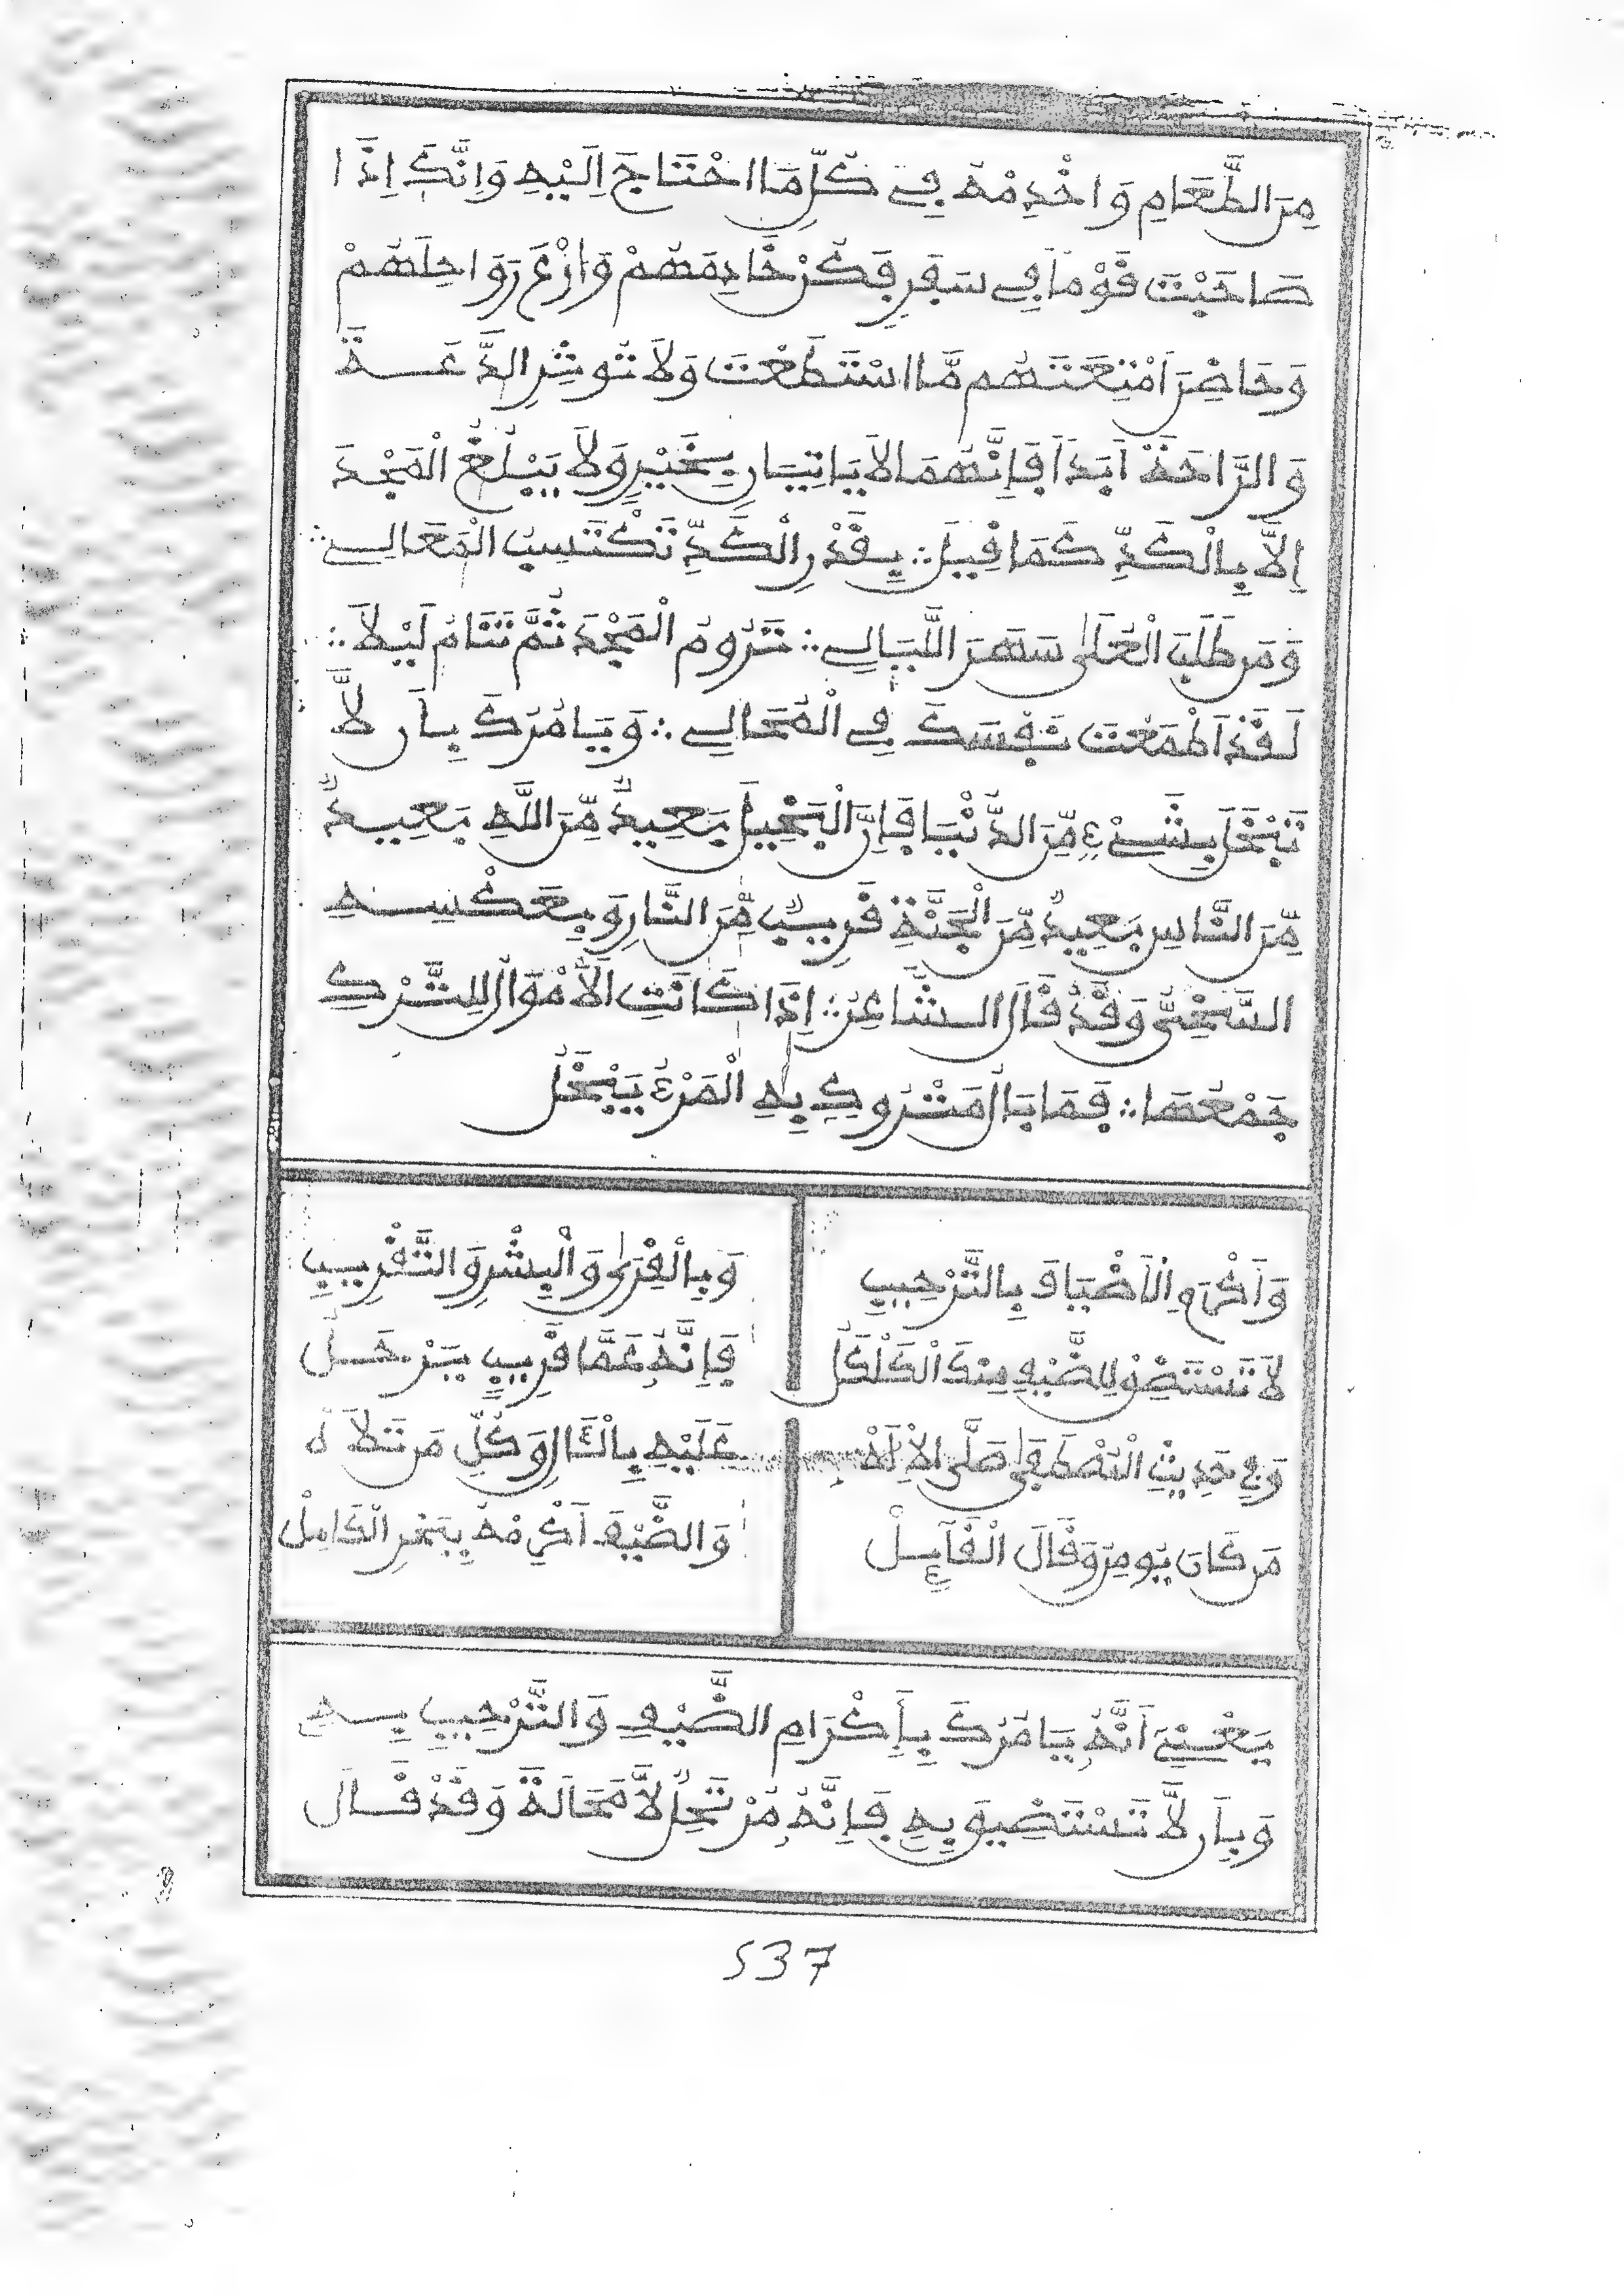 مِنَ الطَّعَامِ وَاخْدِمْهُ فِي كُلِّ مَا احْتَاجَ اِلَيْهِ وَاِنَّكَ اِذَا
صَاحَبْتَ قَوْمًا فِي سَفَرٍ فَكُنْ خَادِمَهُمْ وَارْعَ رَوَاحِلَهُمْ
وَحَاضِرَ اَمْتِعَتَهُم مَّا اسْتَطَعْتَ وَلَا تُوثِرِ الدَّعَةَ
وَالرَّاحَةَ اَبَدًا فَاِنَّهُمَا لَا يَاتِيَانِ بِخَيْرٍ وَلَا يَبْلُغُ الْمَجْدَ
اِلَّا بِالْكَدِّ كَمَا قِيلَ ؞ بِقَدْرِ الْكَدِّ تَكْتَسِبُ الْمَعَالِي ؞
وَمَن طَلَبَ الْعُلَى سَهَرَ اللَّيَالِي ؞ تَرُومُ الْمَجْدَ ثُمَّ تَنَامُ لَيْلًا ؞
لَقَدْ اَطْمَعْتَ نَفْسَكَ فِي الْمُحَالِي ؞ وَيَامُرُكَ بِأَن لَّا
تَبْخَلَ بِشَيْءٍ مِّنَ الدُّنْيَا فَاِنَّ الْبَخِيلَ بَعِيدٌ مِّنَ اللَّهِ بَعِيدٌ
مِّنَ النَّاسِ بَعِيدٌ مِّنَ الْجَنَّةِ قَرِيبٌ مِّنَ النَّارِ وَبِعَكْسِهِ
السَّخِيُّ وَقَدْ قَالَ الشَّاعِرُ ؞ اِذَا كَانَتِ الْاَمْوَالُ لِلتَّرْكِ
جَمْعُهَا ؞ فَمَا بَالُ مَتْرُوكٍ بِهِ الْمَرْءُ يَبْخَلُ
وَاَكْرِمِ الْاَضْيَافَ بِالتَّرْحِيبِ وَبِالْقِرَى وَالْبِشْرِ وَالتَّقْرِيبِ
لَا تَسْتَضِقْ لِلضَّيْفِ مِنْكَ الْكَلْكَلُ فَاِنَّهُ عَمَّا قَرِيبٍ يَرْحَلُ
وَفِي حَدِيثِ الْمُصْطَفَى صَلَّى الْاِلَهْ عَلَيْهِ بِالْآلِ وَكُلِّ مَن تَلَاهْ
مَن كَانَ يُومِنُ وَقَالَ الْقَآئِلْ وَالضَّيْفَ اَكْرِمْهُ بِبَحْرِ الْكَامِلْ
يَعْنِي اَنَّهُ يَامُرُكَ بِإِكْرَامِ الضَّيْفِ وَالتَّرْحِيبِ بِهِ
وَبِأَن لَّا تَسْتَضِيقَ بِهِ فَاِنَّهُ مُرْتَحِلٌ لَّا مَحَالَةَ وَقَدْ قَالَ
537